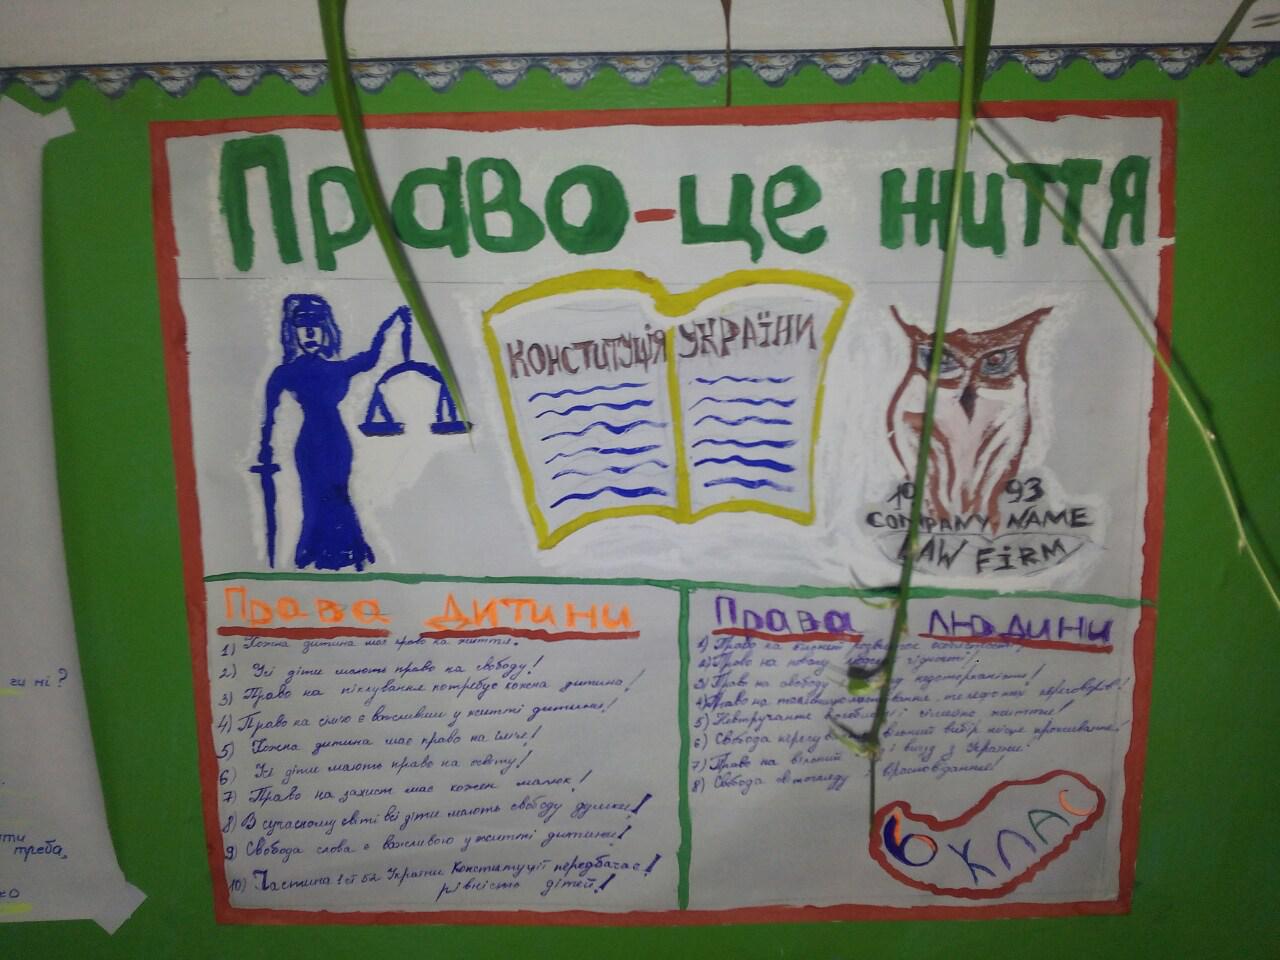 Право-це життя
КОНСТИТУЦІЯ УКРАЇНИ
19 93
COMPANY NAME
LAW FIRM
Права дитини
1) Кожна дитина має право на життя.
2) Усі діти мають право на свободу!
3) Право на піклування потребує кожна дитина!
4) Право на сім'ю є важливим у житті дитини!
5) Кожна дитина має право на ім'я!
6) Усі діти мають право на освіту!
7) Право на захист має кожен малюк!
8) В сучасному світі всі діти мають свободу думки!
9) Свобода слова є важливою у житті дитини!
10) Частина 1 ст 52 України Конституції передбачає!
рівність дітей!
Права людини
1) Право на вільний
2) Право на повагу гідності!
3) Право на свободу недоторканість!
4) Право на таємницю телефонних переговорів!
5) Невтручання і сімейне життя!
6) Свобода вільний вибір місця проживання!
7) Право на вільний виїзд з України!
8) Свобода світогляду віросповідання!
6 КЛАС
ги ні?
треба,